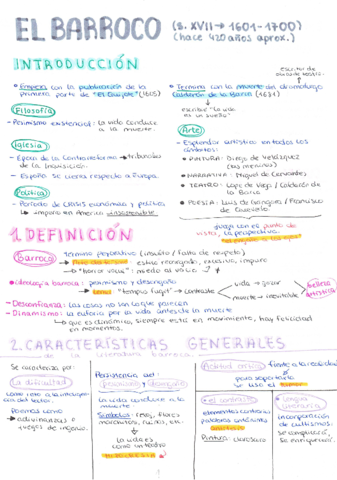 EL BARROCO (s. XVII → 1601-1700)
(hace 420 años aprox.)
INTRODUCCIÓN
escritor de
obras de teatro
- Empieza con la publicación de la
primera parte de "El Quijote" (1605)
- Termina con la muerte del dramaturgo
Calderón de la Barca (1681)
escribe "La vida
es un sueño"
Filosofía
- Pesimismo existencial: la vida conduce
a la muerte.
Iglesia
- Época de la Contrarreforma → tribunales
de la Inquisición.
- España se cierra respecto a Europa.
Política
- Periodo de crisis económica y política
↳ imperio en América insostenible
Arte
- Esplendor artístico en todos los
ámbitos:
• PINTURA: Diego de Velázquez
(Las meninas)
• NARRATIVA: Miguel de Cervantes
• TEATRO: Lope de Vega / Calderón de
la Barca
• POESÍA: Luis de Góngora / Francisco
de Quevedo.
juega con el punto de
vista, la perspectiva.
"el engaño a los ojos"
1. DEFINICIÓN
Barroco → término peyorativo (insulto / falta de respeto)
→ estilo recargado, excesivo, impuro
→ "horror vacui": miedo al vacío
• Ideología barroca: pesimismo y desengaño
→ tema "tempus fugit" → contraste
vida → gozar
muerte → inevitable
belleza
artística
- Desconfianza: las cosas no son lo que parecen
- Dinamismo: la euforia por la vida antes de la muerte
↳ que es dinámico, siempre está en movimiento, hay felicidad
en momentos.
2. CARACTERÍSTICAS GENERALES
de la Literatura barroca
Se caracteriza por:
La dificultad
como reto a la inteligencia
del lector.
Poemas como
adivinanzas o
juegos de ingenio.
Persistencia del:
pesimismo y desengaño
La vida conduce a la
muerte
Símbolos: reloj, flores
marchitas, ruina, etc.
La vida es
como un teatro
Actitud crítica frente a la realidad
para soportarla
se usa el humor
• el contraste
elementos contrarios
palabras contrarias
antítesis
Pintura: claroscuro
• Lengua
literaria
incorporación
de cultismos.
Se enriquece.